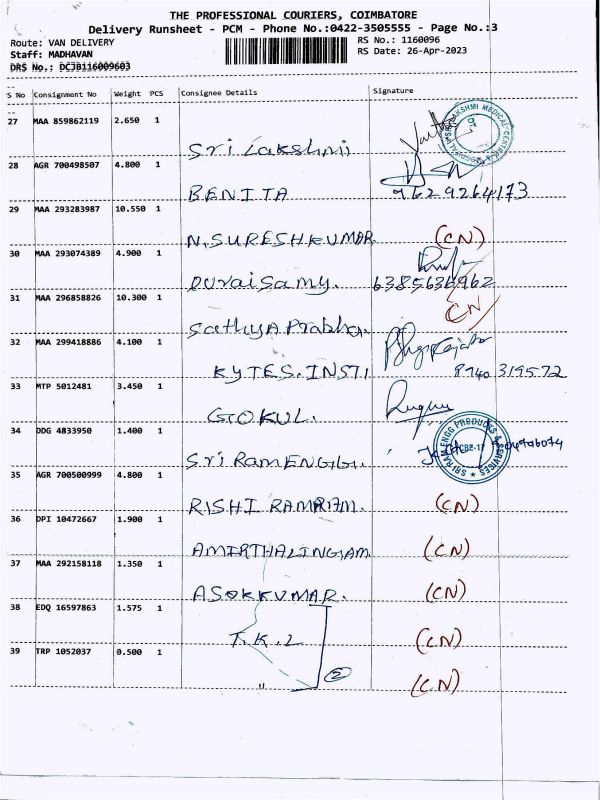 THE PROFESSIONAL COURIERS, COIMBATORE
Delivery Runsheet - PCM - Phone No.:0422-3505555 - Page No.:3
Route: VAN DELIVERY RS No.: 1160096
Staff: MADHAVAN RS Date: 26-Apr-2023
DRS No.: DCJB116009603
S No Consignment No Weight PCS Consignee Details Signature
27 MAA 859862119 2.650 1
Sri Lakshmi
28 AGR 700498507 4.800 1
BENITA 9629264173
29 MAA 293283987 10.550 1
N.SURESHKUMAR (CN)
30 MAA 293074389 4.900 1
Duraisamy.
31 MAA 296858826 10.300 1
Sathya Prabha. CN
32 MAA 299418886 4.100 1
KYTES.INSTI 8940 319572
33 MTP 5012481 3.450 1
GOKUL.
34 DDG 4833950 1.400 1
SRI RAM ENGG PRODUCTS & SERVICES
Sri Ram ENGG.
35 AGR 700500999 4.800 1
RISHI RAM (CN)
36 DPI 10472667 1.900 1
AMIRTHALINGAM (CN)
37 MAA 292158118 1.350 1
ASOKKUMAR. (CN)
38 EDQ 16597863 1.575 1
T.K.L (CN)
39 TRP 1052037 0.500 1
" 2 (CN)